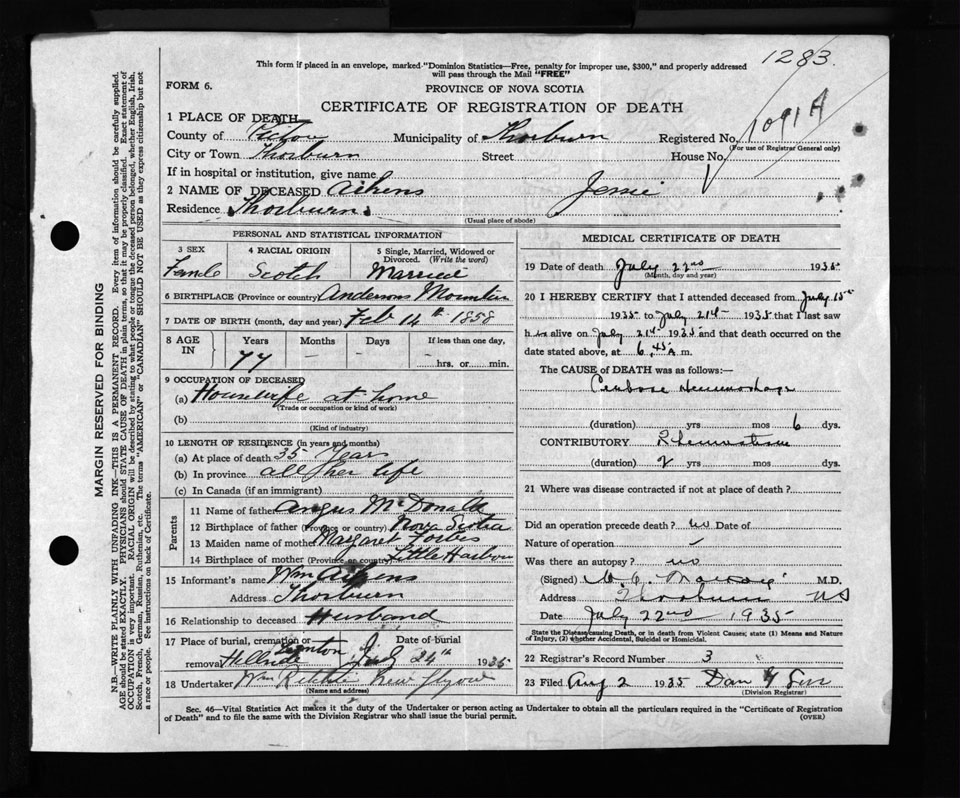 1283.
This form if placed in an envelope, marked "Dominion Statistics—Free, penalty for improper use, $300," and properly addressed
will pass through the Mail "FREE"
FORM 6.
PROVINCE OF NOVA SCOTIA
CERTIFICATE OF REGISTRATION OF DEATH
1091A
1 PLACE OF DEATH
County of Pictou Municipality of Thorburn Registered No.
(For use of Registrar General only)
City or Town Thorburn Street House No.
If in hospital or institution, give name
2 NAME OF DECEASED Aikens Jessie
Residence Thorburn
(Usual place of abode)
PERSONAL AND STATISTICAL INFORMATION
3 SEX 4 RACIAL ORIGIN 5 Single, Married, Widowed or
Divorced. (Write the word)
Female Scotch Married
6 BIRTHPLACE (Province or country) Andersons Mountain
7 DATE OF BIRTH (month, day and year) Feb 14th 1858
8 AGE IN Years Months Days If less than one day,
77 — — hrs. or min.
9 OCCUPATION OF DECEASED
(a) Housewife at home
(Trade or occupation or kind of work)
(b)
(Kind of industry)
10 LENGTH OF RESIDENCE (in years and months)
(a) At place of death 35 Years
(b) In province all her life
(c) In Canada (if an immigrant)
Parents
11 Name of father Angus McDonald
12 Birthplace of father (Province or country) Nova Scotia
13 Maiden name of mother Margaret Forbes
14 Birthplace of mother (Province or country) Little Harbour
15 Informant's name Wm Aikens
Address Thorburn
16 Relationship to deceased Husband
17 Place of burial, cremation or removal Date of burial
July 24th 1935
18 Undertaker Wm Ritchie New Glasgow
(Name and address)
MEDICAL CERTIFICATE OF DEATH
19 Date of death July 22nd 1935
(Month, day and year)
20 I HEREBY CERTIFY that I attended deceased from July 15th
1935 to July 21st 1935 that I last saw
h er alive on July 21st 1935 and that death occurred on the
date stated above, at 6.45 A m.
The CAUSE of DEATH was as follows:
Cerebral Hemorrhage
(duration) yrs mos 6 dys.
CONTRIBUTORY Rheumatism
(duration) 2 yrs mos dys.
21 Where was disease contracted if not at place of death?
Did an operation precede death? no Date of
Nature of operation
Was there an autopsy? no
(Signed) M.D.
Address Thorburn NS
Date July 22nd 1935
State the Disease causing Death, or in death from Violent Causes; state (1) Means and Nature
of Injury, (2) whether Accidental, Suicidal or Homicidal.
22 Registrar's Record Number 3
23 Filed Aug 2 1935 Dan
(Division Registrar)
Sec. 46—Vital Statistics Act makes it the duty of the Undertaker or person acting as Undertaker to obtain all the particulars required in the "Certificate of Registration
of Death" and to file the same with the Division Registrar who shall issue the burial permit. (OVER)
MARGIN RESERVED FOR BINDING
N.B.—WRITE PLAINLY WITH UNFADING INK—THIS IS A PERMANENT RECORD. Every item of information should be carefully supplied.
AGE should be stated EXACTLY. PHYSICIANS should STATE CAUSE OF DEATH in plain terms, so that it may be properly classified. Exact statement of
OCCUPATION is very important. RACIAL ORIGIN will be described by stating to what people or tongue the deceased person belonged, whether English, Irish,
Scotch, French, German, Russian, Ruthenian, etc. The terms "AMERICAN" or "CANADIAN" SHOULD NOT BE USED as they express citizenship but not
a race or people. See instructions on back of Certificate.